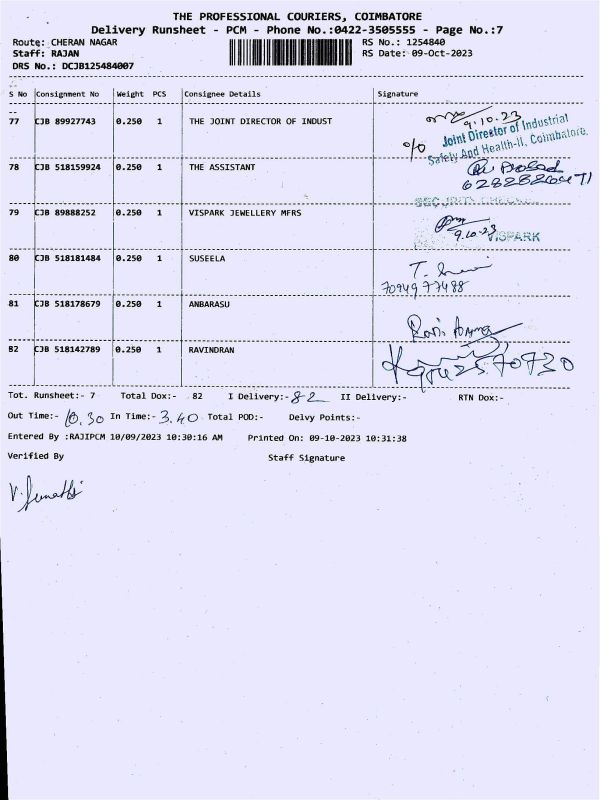 THE PROFESSIONAL COURIERS, COIMBATORE
Delivery Runsheet - PCM - Phone No.:0422-3505555 - Page No.:7
Route: CHERAN NAGAR RS No.: 1254840
Staff: RAJAN RS Date: 09-Oct-2023
DRS No.: DCJB125484007
S No Consignment No Weight PCS Consignee Details Signature
77 CJB 89927743 0.250 1 THE JOINT DIRECTOR OF INDUST
9.10.23
Joint Director of Industrial
Safety And Health-II, Coimbatore.
78 CJB 518159924 0.250 1 THE ASSISTANT
79 CJB 89888252 0.250 1 VISPARK JEWELLERY MFRS
9.10.23 VISPARK
80 CJB 518181484 0.250 1 SUSEELA
7094977488
81 CJB 518178679 0.250 1 ANBARASU
82 CJB 518142789 0.250 1 RAVINDRAN
Tot. Runsheet:- 7 Total Dox:- 82 I Delivery:- 82 II Delivery:- RTN Dox:-
Out Time:- 10.30 In Time:- 3.40 Total POD:- Delvy Points:-
Entered By :RAJIPCM 10/09/2023 10:30:16 AM Printed On: 09-10-2023 10:31:38
Verified By Staff Signature